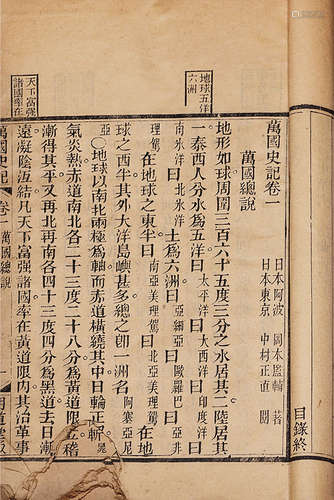 目錄終
地球五洋
六洲
天下富强
諸國率在
萬國史記卷一
日本阿波 岡本監輔 著
日本東京 中村正直 閱
萬國總說
地形如球周圍三百六十五度三分之水居其二陸居其
一泰西人分水爲五洋曰太平洋曰大西洋曰印度洋曰
南氷洋曰北氷洋土爲六洲曰亞細亞曰歐羅巴曰亞非
理駕在地球之東半曰南亞美理駕曰北亞美理駕在地
球之西半其外大洋島嶼甚多總之卽一洲名阿塞亞尼
亞○地球以南北兩極爲軸而赤道橫繞其中日輪正
氣炎熱赤道南北各二十三度二十八分爲黃道限
漸得其平又再北再南各四十三度四分爲黑道去日漸
遠凝陰沍結凡天下富强諸國率在黃道限內其治
萬國史記 卷一 萬國總說